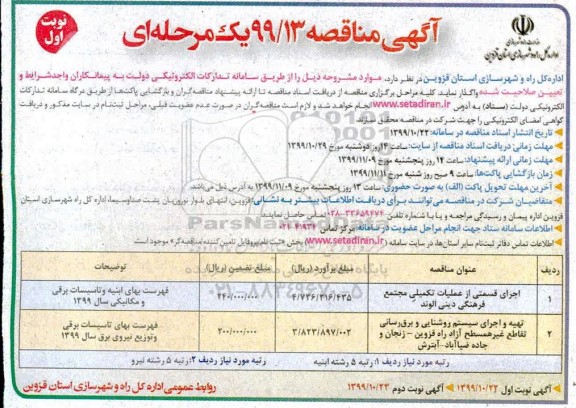 آگهی مناقصه ۹۹/۱۳ یک مرحله‌ای
نوبت اول
اداره کل راه و شهرسازی استان قزوین
اداره کل راه و شهرسازی استان قزوین در نظر دارد، موارد مشروحه ذیل را از طریق سامانه تدارکات الکترونیکی دولت به پیمانکاران واجد شرایط و
تعیین صلاحیت شده واگذار نماید. کلیه مراحل برگزاری مناقصه از دریافت اسناد مناقصه تا ارائه پیشنهاد مناقصه‌گران و بازگشایی پاکت‌ها از طریق درگاه سامانه تدارکات
الکترونیکی دولت (ستاد) به آدرس www.setadiran.ir انجام خواهد شد و لازم است مناقصه‌گران در صورت عدم عضویت قبلی، مراحل ثبت‌نام در سایت مذکور و دریافت
گواهی امضای الکترونیکی را جهت شرکت در مناقصه محقق سازند.
تاریخ انتشار اسناد مناقصه در سامانه: ۱۳۹۹/۱۰/۲۲
مهلت زمانی دریافت اسناد مناقصه از سایت: ساعت ۱۴ روز دوشنبه مورخ ۱۳۹۹/۱۰/۲۹
مهلت زمانی ارائه پیشنهاد: ساعت ۱۴ روز پنجشنبه مورخ ۱۳۹۹/۱۱/۰۹
زمان بازگشایی پاکت‌ها: ساعت ۹ صبح روز شنبه مورخ ۱۳۹۹/۱۱/۱۱
آخرین مهلت تحویل پاکت (الف) به صورت حضوری: ساعت ۱۳ روز پنجشنبه مورخ ۱۳۹۹/۱۱/۰۹ به آدرس ذیل می‌باشد.
متقاضیان شرکت در مناقصه می‌توانند برای دریافت اطلاعات بیشتر به نشانی: قزوین، انتهای بلوار نوروزیان پشت صداوسیما، اداره کل راه و شهرسازی استان
قزوین اداره پیمان و رسیدگی مراجعه و یا با شماره تلفن: ۳۳۶۵۹۴۷۴-۰۲۸ تماس حاصل نمایند.
اطلاعات سامانه ستاد جهت انجام مراحل عضویت در سامانه: مرکز تماس ۴۱۹۳۴-۰۲۱
اطلاعات تماس دفاتر ثبت‌نام سایر استان‌ها، در سایت سامانه (www.setadiran.ir) بخش «ثبت نام/پروفایل تامین کننده/مناقصه‌گر» موجود است.
ردیف عنوان مناقصه مبلغ برآورد (ریال) مبلغ تضمین (ریال) توضیحات
۱ اجرای قسمتی از عملیات تکمیلی مجتمع فرهنگی دینی الوند ۴/۷۳۶/۳۱۶/۴۳۵ ۲۴۰/۰۰۰/۰۰۰ فهرست بهای ابنیه و تاسیسات برقی و مکانیکی سال ۱۳۹۹
۲ تهیه و اجرای سیستم روشنایی و برق‌رسانی تقاطع غیرهمسطح آزاد راه قزوین – زنجان و جاده ضیاآباد–آبترش ۳/۸۲۳/۸۹۷/۰۰۲ ۲۰۰/۰۰۰/۰۰۰ فهرست بهای تاسیسات برقی و توزیع نیروی برق سال ۱۳۹۹
رتبه مورد نیاز ردیف ۱: رتبه ۵ رشته ابنیه رتبه مورد نیاز ردیف ۲: رتبه ۵ رشته نیرو
آگهی نوبت اول ۱۳۹۹/۱۰/۲۲ آگهی نوبت دوم ۱۳۹۹/۱۰/۲۳
روابط عمومی اداره کل راه و شهرسازی استان قزوین